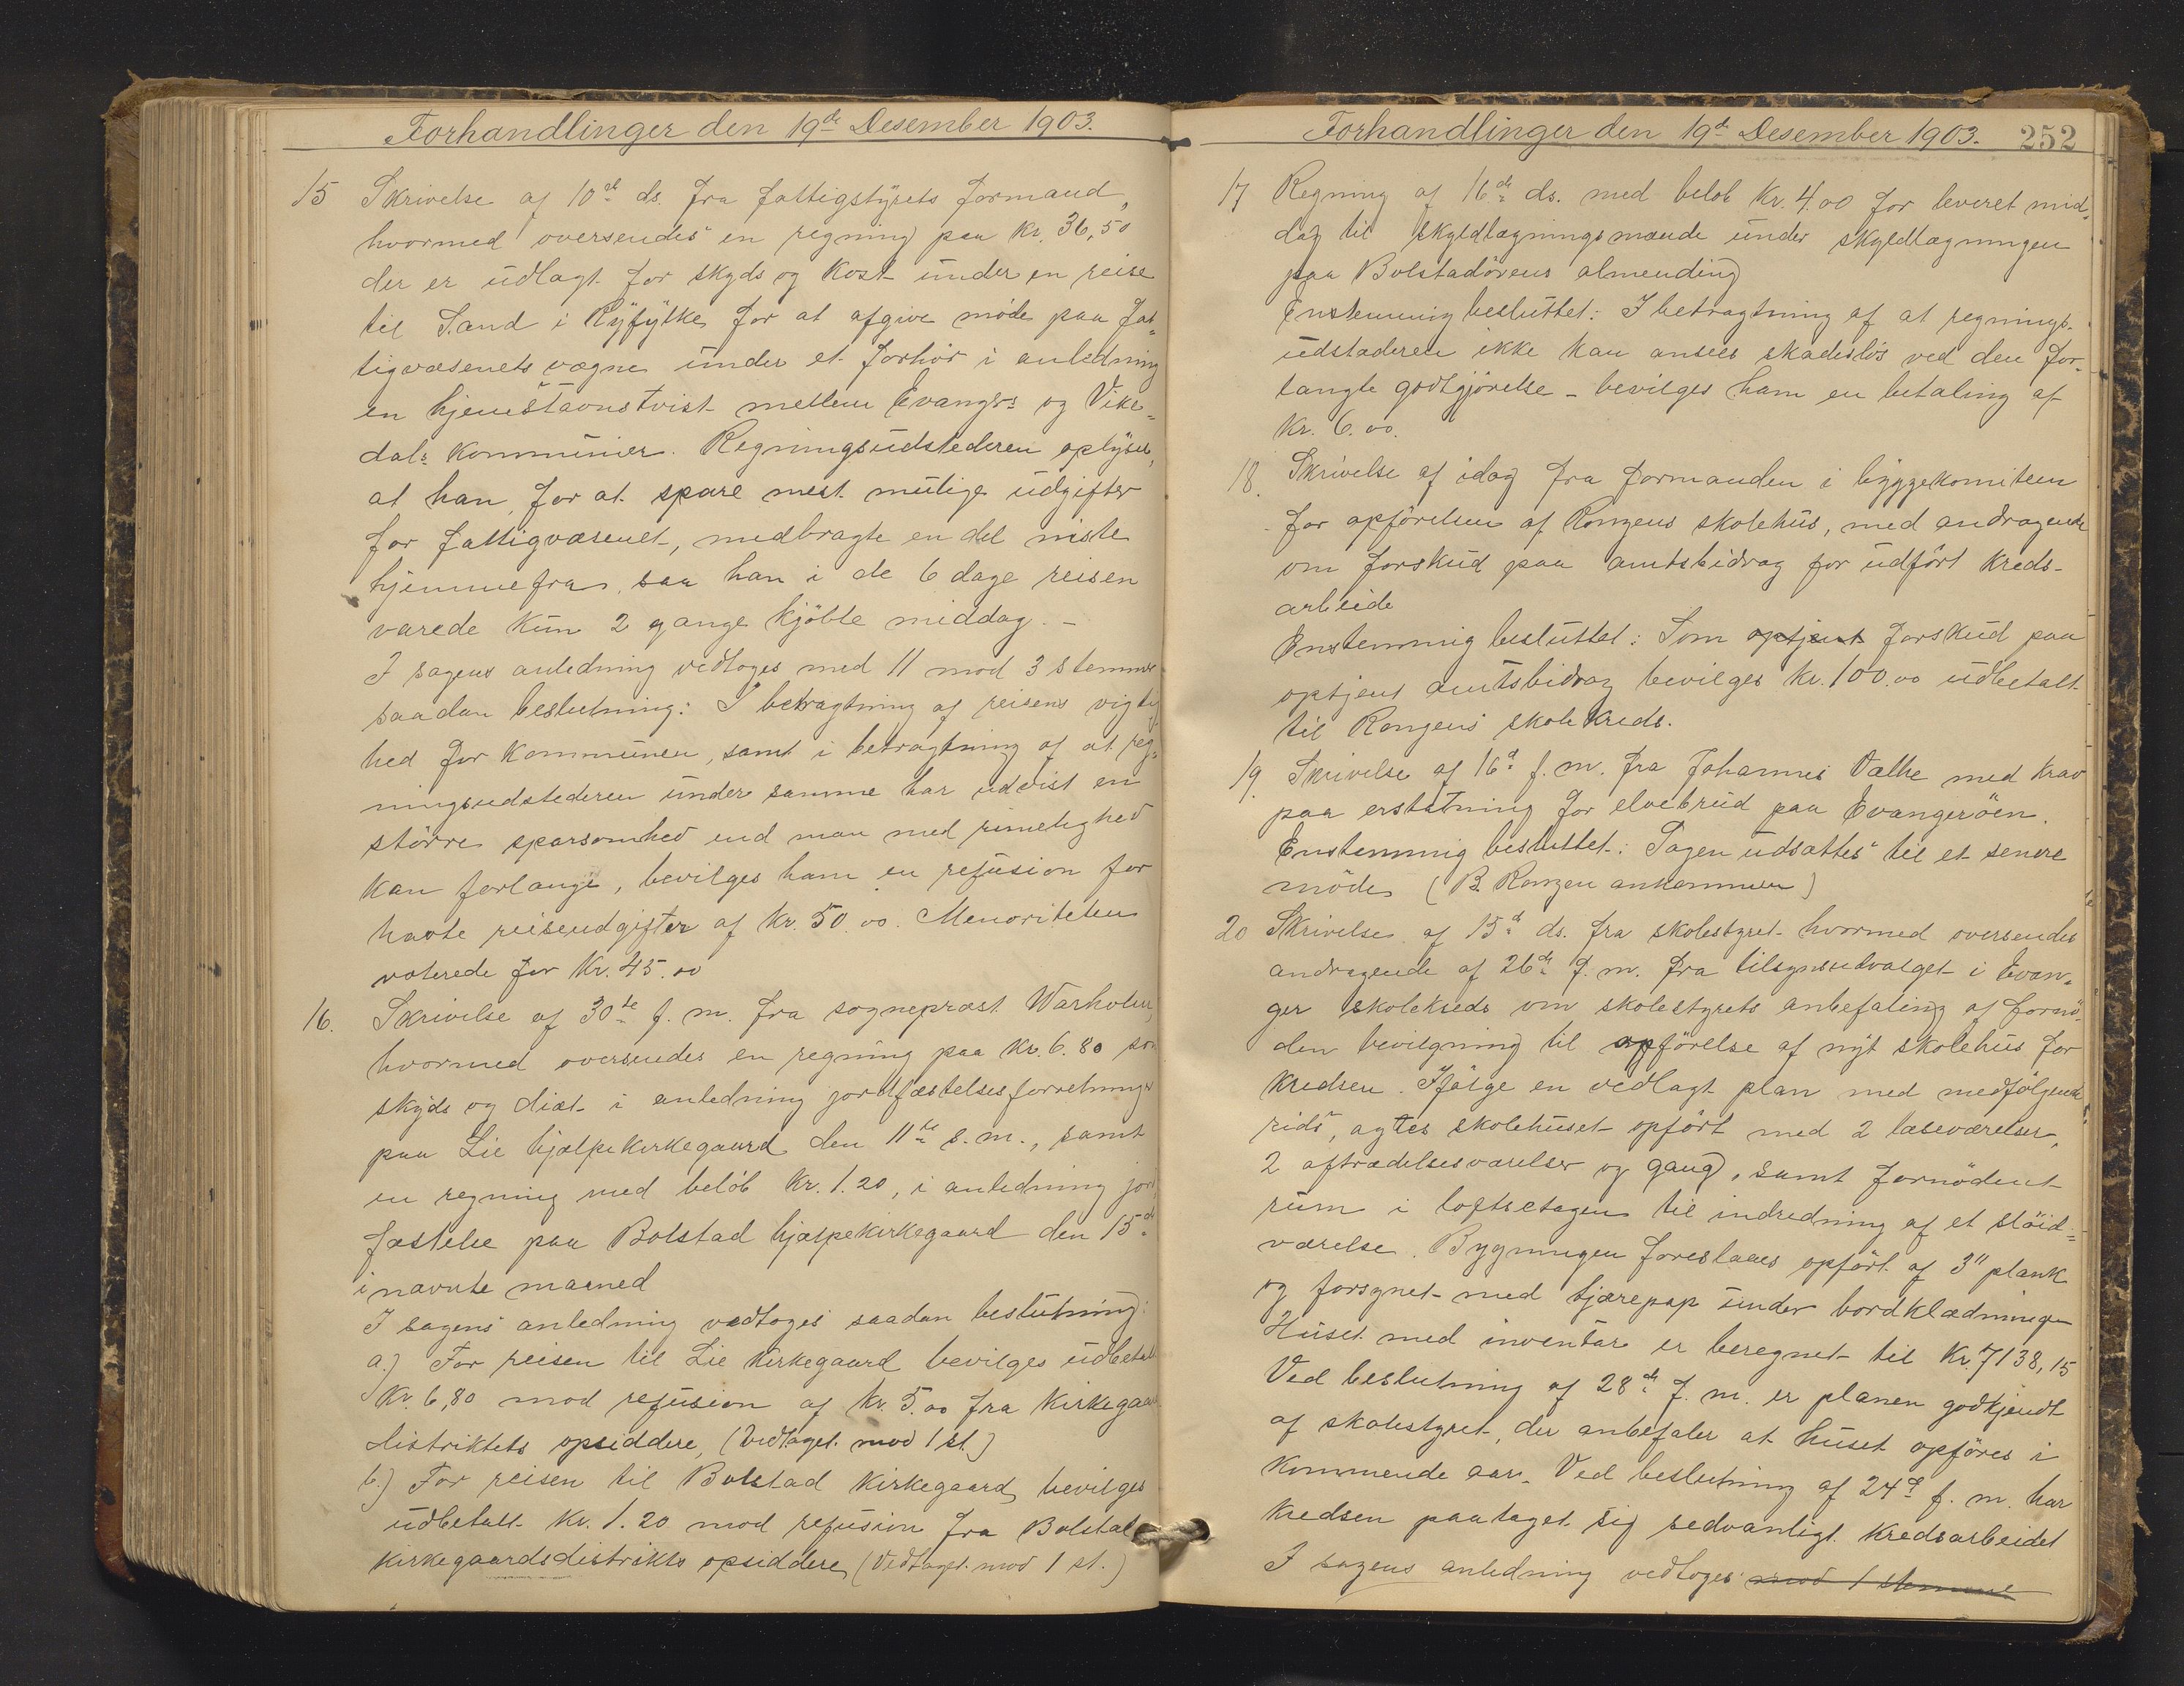 Forhandlinger den 19de Desember 1903.
15 Skrivelse af 10de ds. fra fattigstyrets formand,
hvormed oversendes en regning paa Kr. 36,50
der er udlagt for skyds og kost under en reise
til Sand i Ryfylke for at afgive møde paa fat-
tigvæsenets vegne under et forhør i anledning
en hjemstavnstvist mellem Evangers og Vike-
dals kommuner. Regningsudstederen oplyser,
at han, for at spare mest mulige udgifter
for fattigvæsenet, medbragte en del niste
hjemmefra, saa han i de 6 dage reisen
varede kun 2 gange kjøbte middag. –
I sagens anledning vedtoges med 11 mod 3 stemmer
saadan beslutning: I betragtning af reisens vigtig
hed for kommunen, samt i betragtning af at reg-
ningsudstederen under samme har udvist en
større sparsomhed end man med rimelighed
kan forlange, bevilges ham en refusion for
havte reiseudgifter af Kr. 50.00. Menoriteten
voterede for Kr. 45.00
16. Skrivelse af 30te f. m. fra sognepræst Warholm,
hvormed oversendes en regning paa Kr. 6.80 for
skyds og diæt i anledning jordfæstelsesforretninger
paa Lie hjælpekirkegaard den 11te s.m., samt
en regning med beløb Kr. 1.20, i anledning jord
fæstelse paa Bolstad hjælpekirkegaard den 15de
i nævnte maaned
I sagens anledning vedtoges saadan beslutning:
a.) For reisen til Lie Kirkegaard bevilges udbetalt
Kr. 6,80 mod refusion af Kr. 5.00 fra Kirkegaar
distriktets opsiddere, (Vedtaget mod 1 st.)
b.) For reisen til Bolstad Kirkegaard, bevilges
udbetalt Kr. 1.20 mod refusion fra Bolstad
kirkegaardsdistrikts opsiddere, (Vedtaget mod 1 st.)
Forhandlinger den 19de Desember 1903. 252
17 Regning af 16de ds. med beløb Kr. 4.00 for leveret mid-
dag til skyldlægningsmænde under skyldlægningen
paa Bolstadørens almending
Enstemmig besluttet: I betragtning af at regnings-
udstæderen ikke kan ansees skadesløs ved den for-
langte godtgjørelse – bevilges ham en betaling af
Kr. 6.00.
18. Skrivelse af idag fra formanden i byggekomiteen
for opførelsen af Rongens skolehus, med andragende
om forskud paa amtsbidrag for udført kreds-
arbeide
Enstemmig besluttet: Som optjent forskud paa
optjent amtsbidrag bevilges kr. 100.00 udbetalt
til Rongens skolekreds.
19. Skrivelse af 16de f. m. fra Johannes Vælhe med krav
paa erstatning for elvebrud paa Evangerøen.
Enstemmig besluttet: Sagen udsattes til et senere
møde (B. Rongen ankommen)
20 Skrivelse af 15de ds. fra skolestyret hvormed oversendes
andragende af 26de f. m. fra tilsynsudvalget i Evan-
ger skolekreds om skolestyrets anbefaling af fornø-
den bevilgning til opførelse af nyt skolehus for
kredsen. Ifølge en vedlagt plan med medfølgende
rids, agtes skolehuset opført med 2 læseværelser,
2 aftrædelsesværelser og gang, samt fornødent
rum i loftsetagen til indredning af et sløid-
værelse. Bygningen foreslaaes opført af 3" plank
og forsynet med tjærepap under bordklædningen
Huset med inventar er beregnet til Kr. 7138,15
Ved beslutning af 28de f. m. er planen godkjendt
af skolestyret, der anbefaler at huset opføres i
kommende aar. Ved beslutning af 24de f. m. har
kredsen paataget sig sedvanligt kredsarbeidet
I sagens anledning vedtoges mod 1 stemme